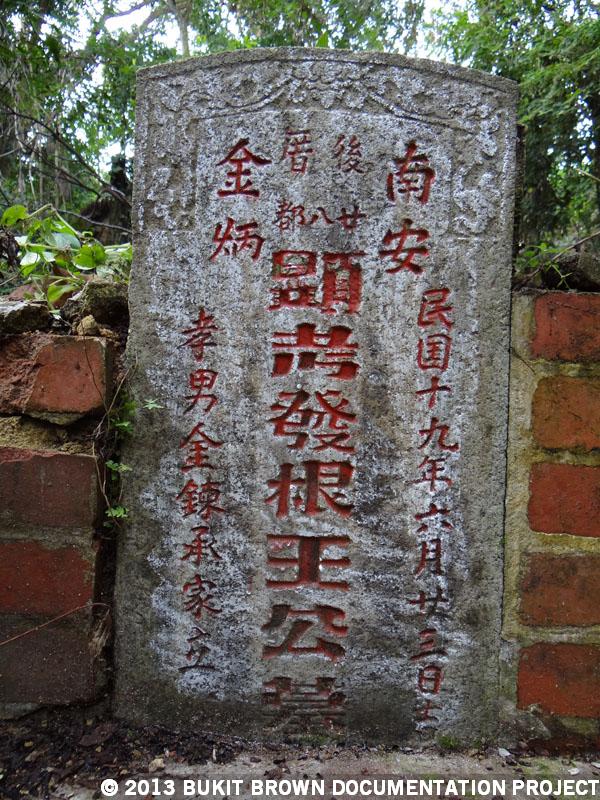 南安
民国十九年六月廿三日
後厝
廿八都
顯考發根王公墓
金炳
孝男金鍊承家立
© 2013 BUKIT BROWN DOCUMENTATION PROJECT